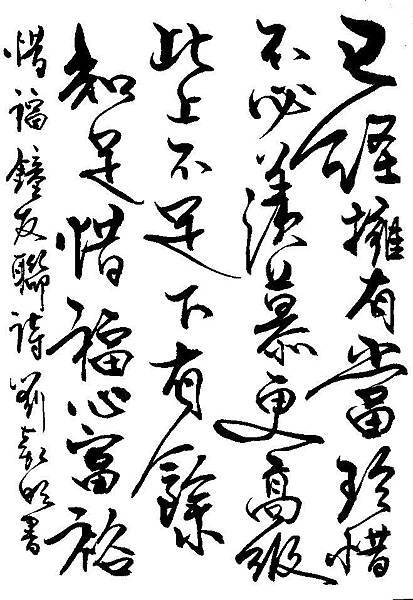 已經擁有當珍惜
不必羨慕更高級
比上不足下有餘
知足惜福心富裕
惜福 鐘友聯詩 劉書